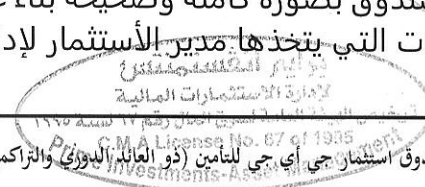 ندوق بصورة كاملة وصحيحة بناء
ت التي يتخذها مدير الأستثمار لإد
برايم انفستمنتس
لإدارة الاستثمارات المالية
C.M.A License No. 67 of 1995
Prime Investments-Asset Management
دوق استثمار جي أي جي للتأمين (ذو العائد الدوري والتراكم